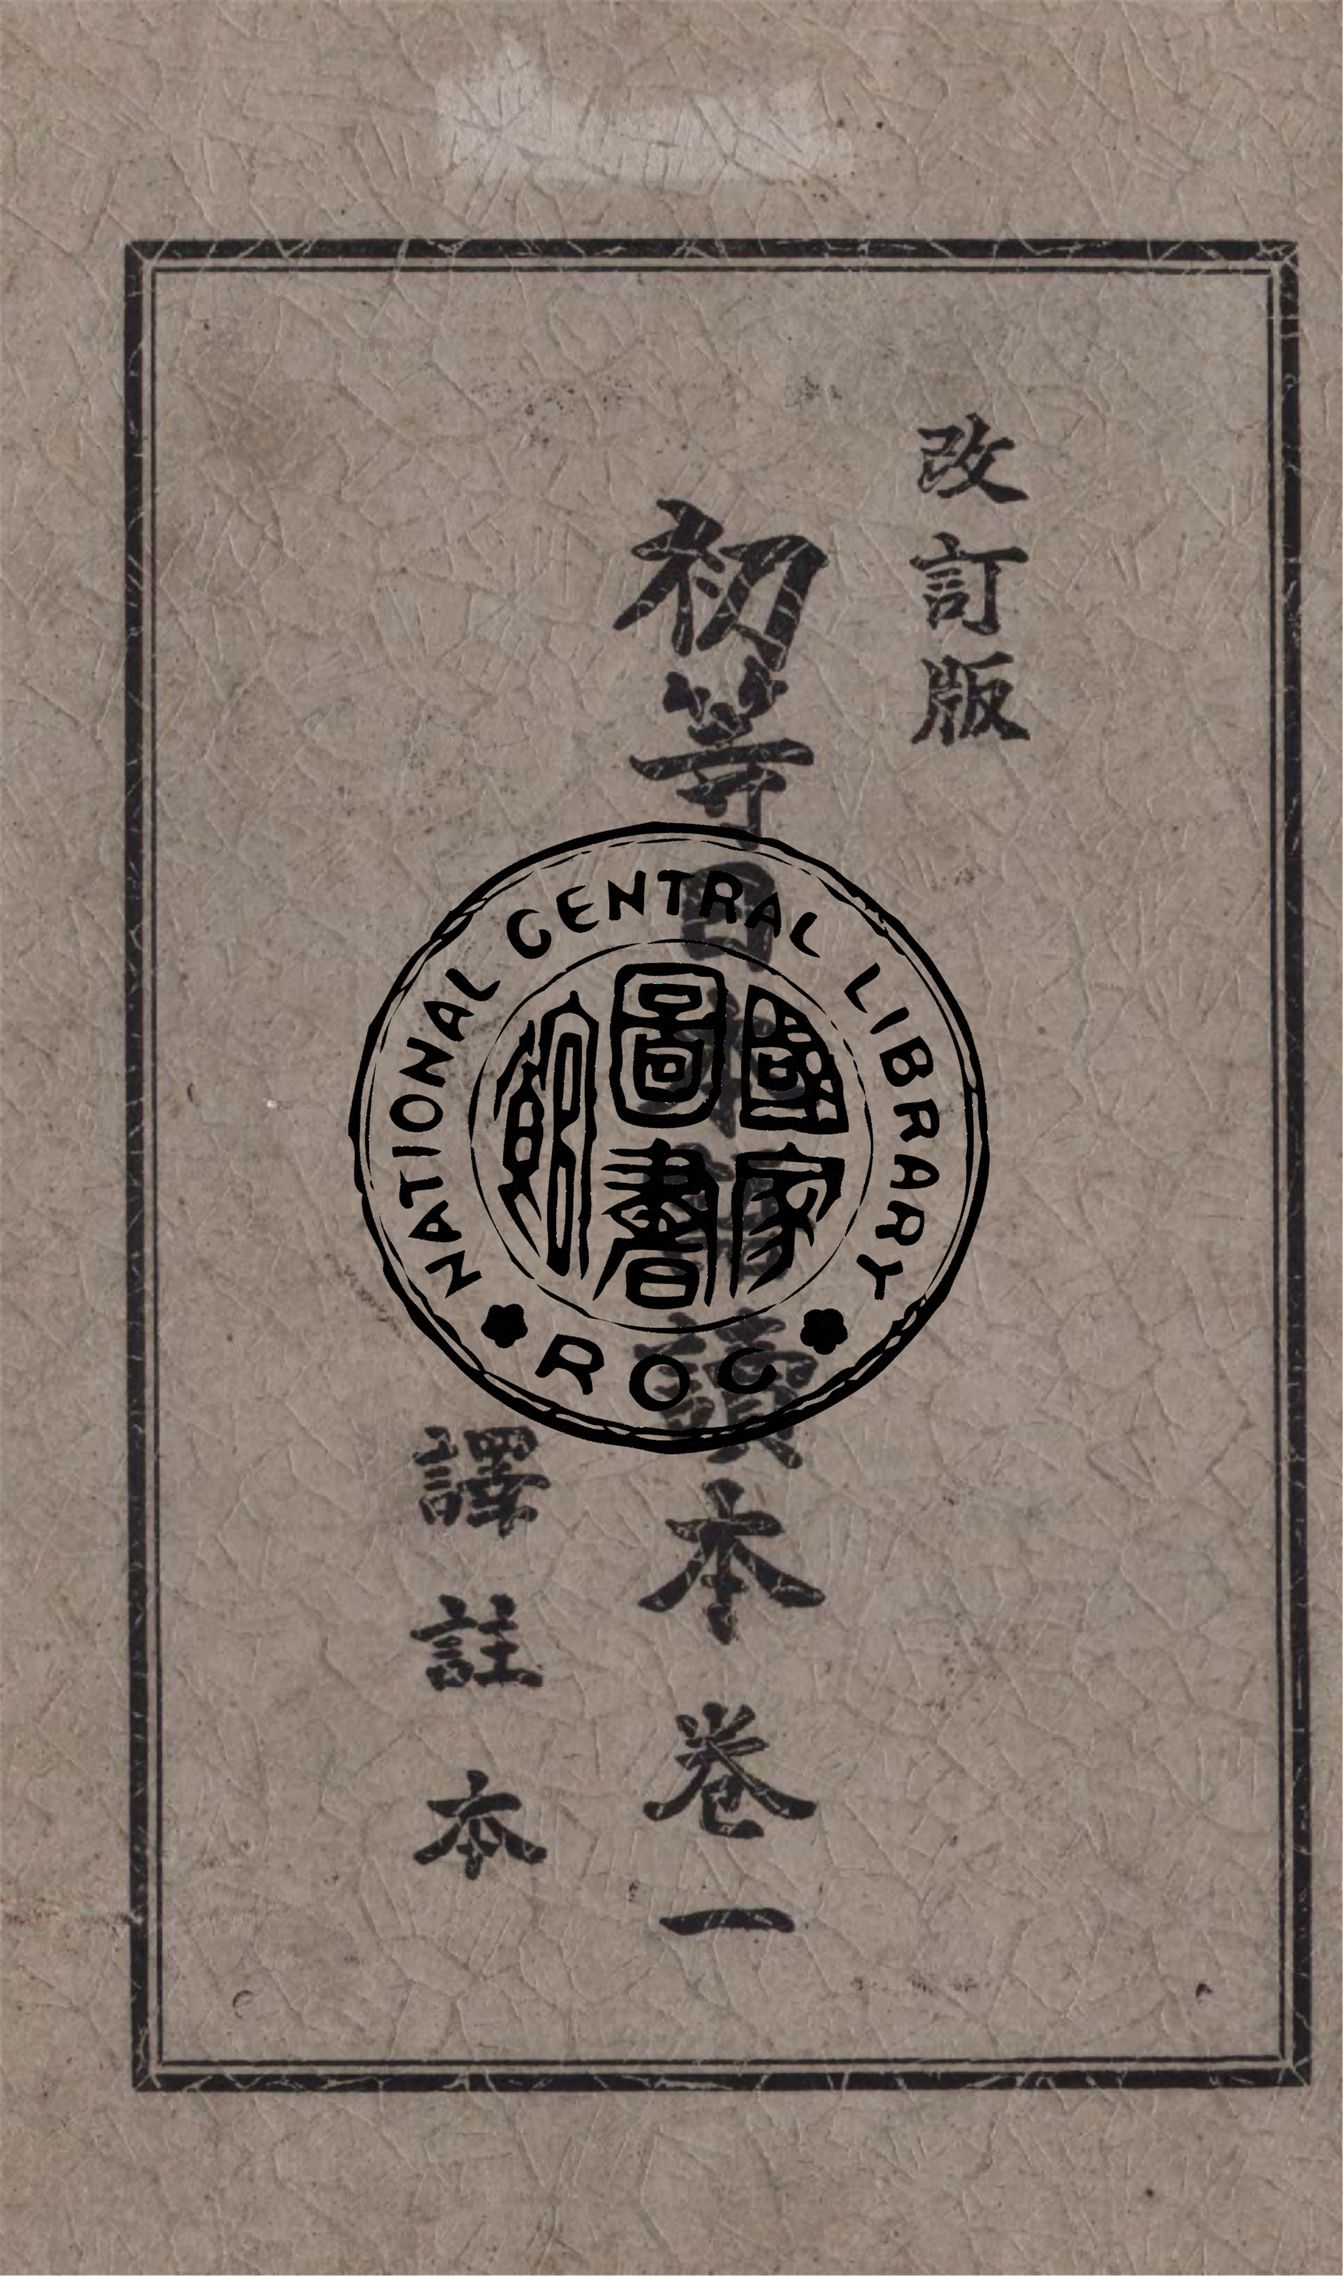 改訂版
初等日本語讀本 卷一
譯註本
NATIONAL CENTRAL LIBRARY
ROC
國家圖書館